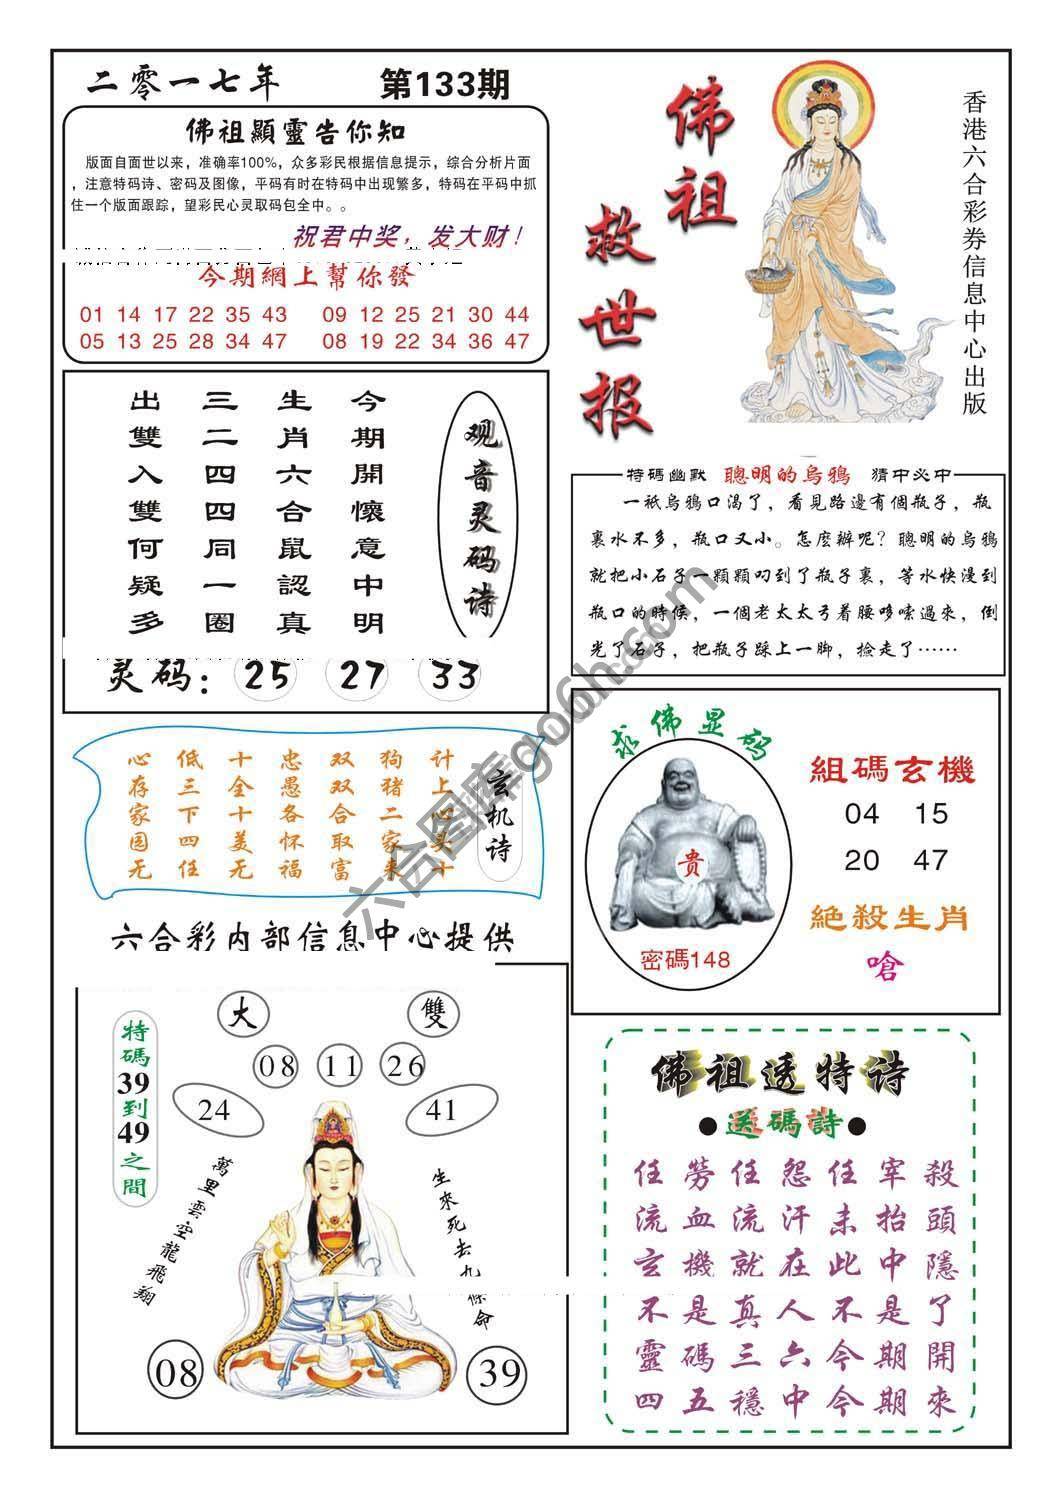 二零一七年 第133期
佛祖顯靈告你知
版面自面世以来，准确率100%，众多彩民根据信息提示，综合分析片面
，注意特码诗、密码及图像，平码有时在特码中出现繁多，特码在平码中抓
住一个版面跟踪，望彩民心灵取码包全中。。
祝君中奖，发大财！
今期網上幫你發
01 14 17 22 35 43 09 12 25 21 30 44
05 13 25 28 34 47 08 19 22 34 36 47
佛祖救世报
香港六合彩券信息中心出版
观音灵码诗
今期開懷意中明
生肖六合鼠認真
三二四四同一圈
出雙入雙何疑多
灵码：25 27 33
特碼幽默 聰明的烏鴉 猜中必中
一衹烏鴉口渴了，看見路邊有個瓶子，瓶
裏水不多，瓶口又小。怎麼辦呢？聰明的烏鴉
就把小石子一顆顆叼到了瓶子裏，等水快漫到
瓶口的時候，一個老太太弓着腰哆嗦過來，倒
光了石子，把瓶子踩上一脚，撿走了……
玄机诗
计上心头十
狗猪二家来
双双合取富
忠愚各怀福
十全十美无
低三下四任
心存家园无
求佛显码
贵
密碼148
組碼玄機
04 15
20 47
絕殺生肖
嗆
六合彩内部信息中心提供
特碼39到49之間
大 雙
08 11 26
24 41
萬里雲空龍飛翔
生來死去九條命
08 39
佛祖透特诗
●送碼詩●
任勞任怨任宰殺
流血流汗未抬頭
玄機就在此中隱
不是真人不是了
靈碼三六今期開
四五穩中今期來
六合图库go6h.com